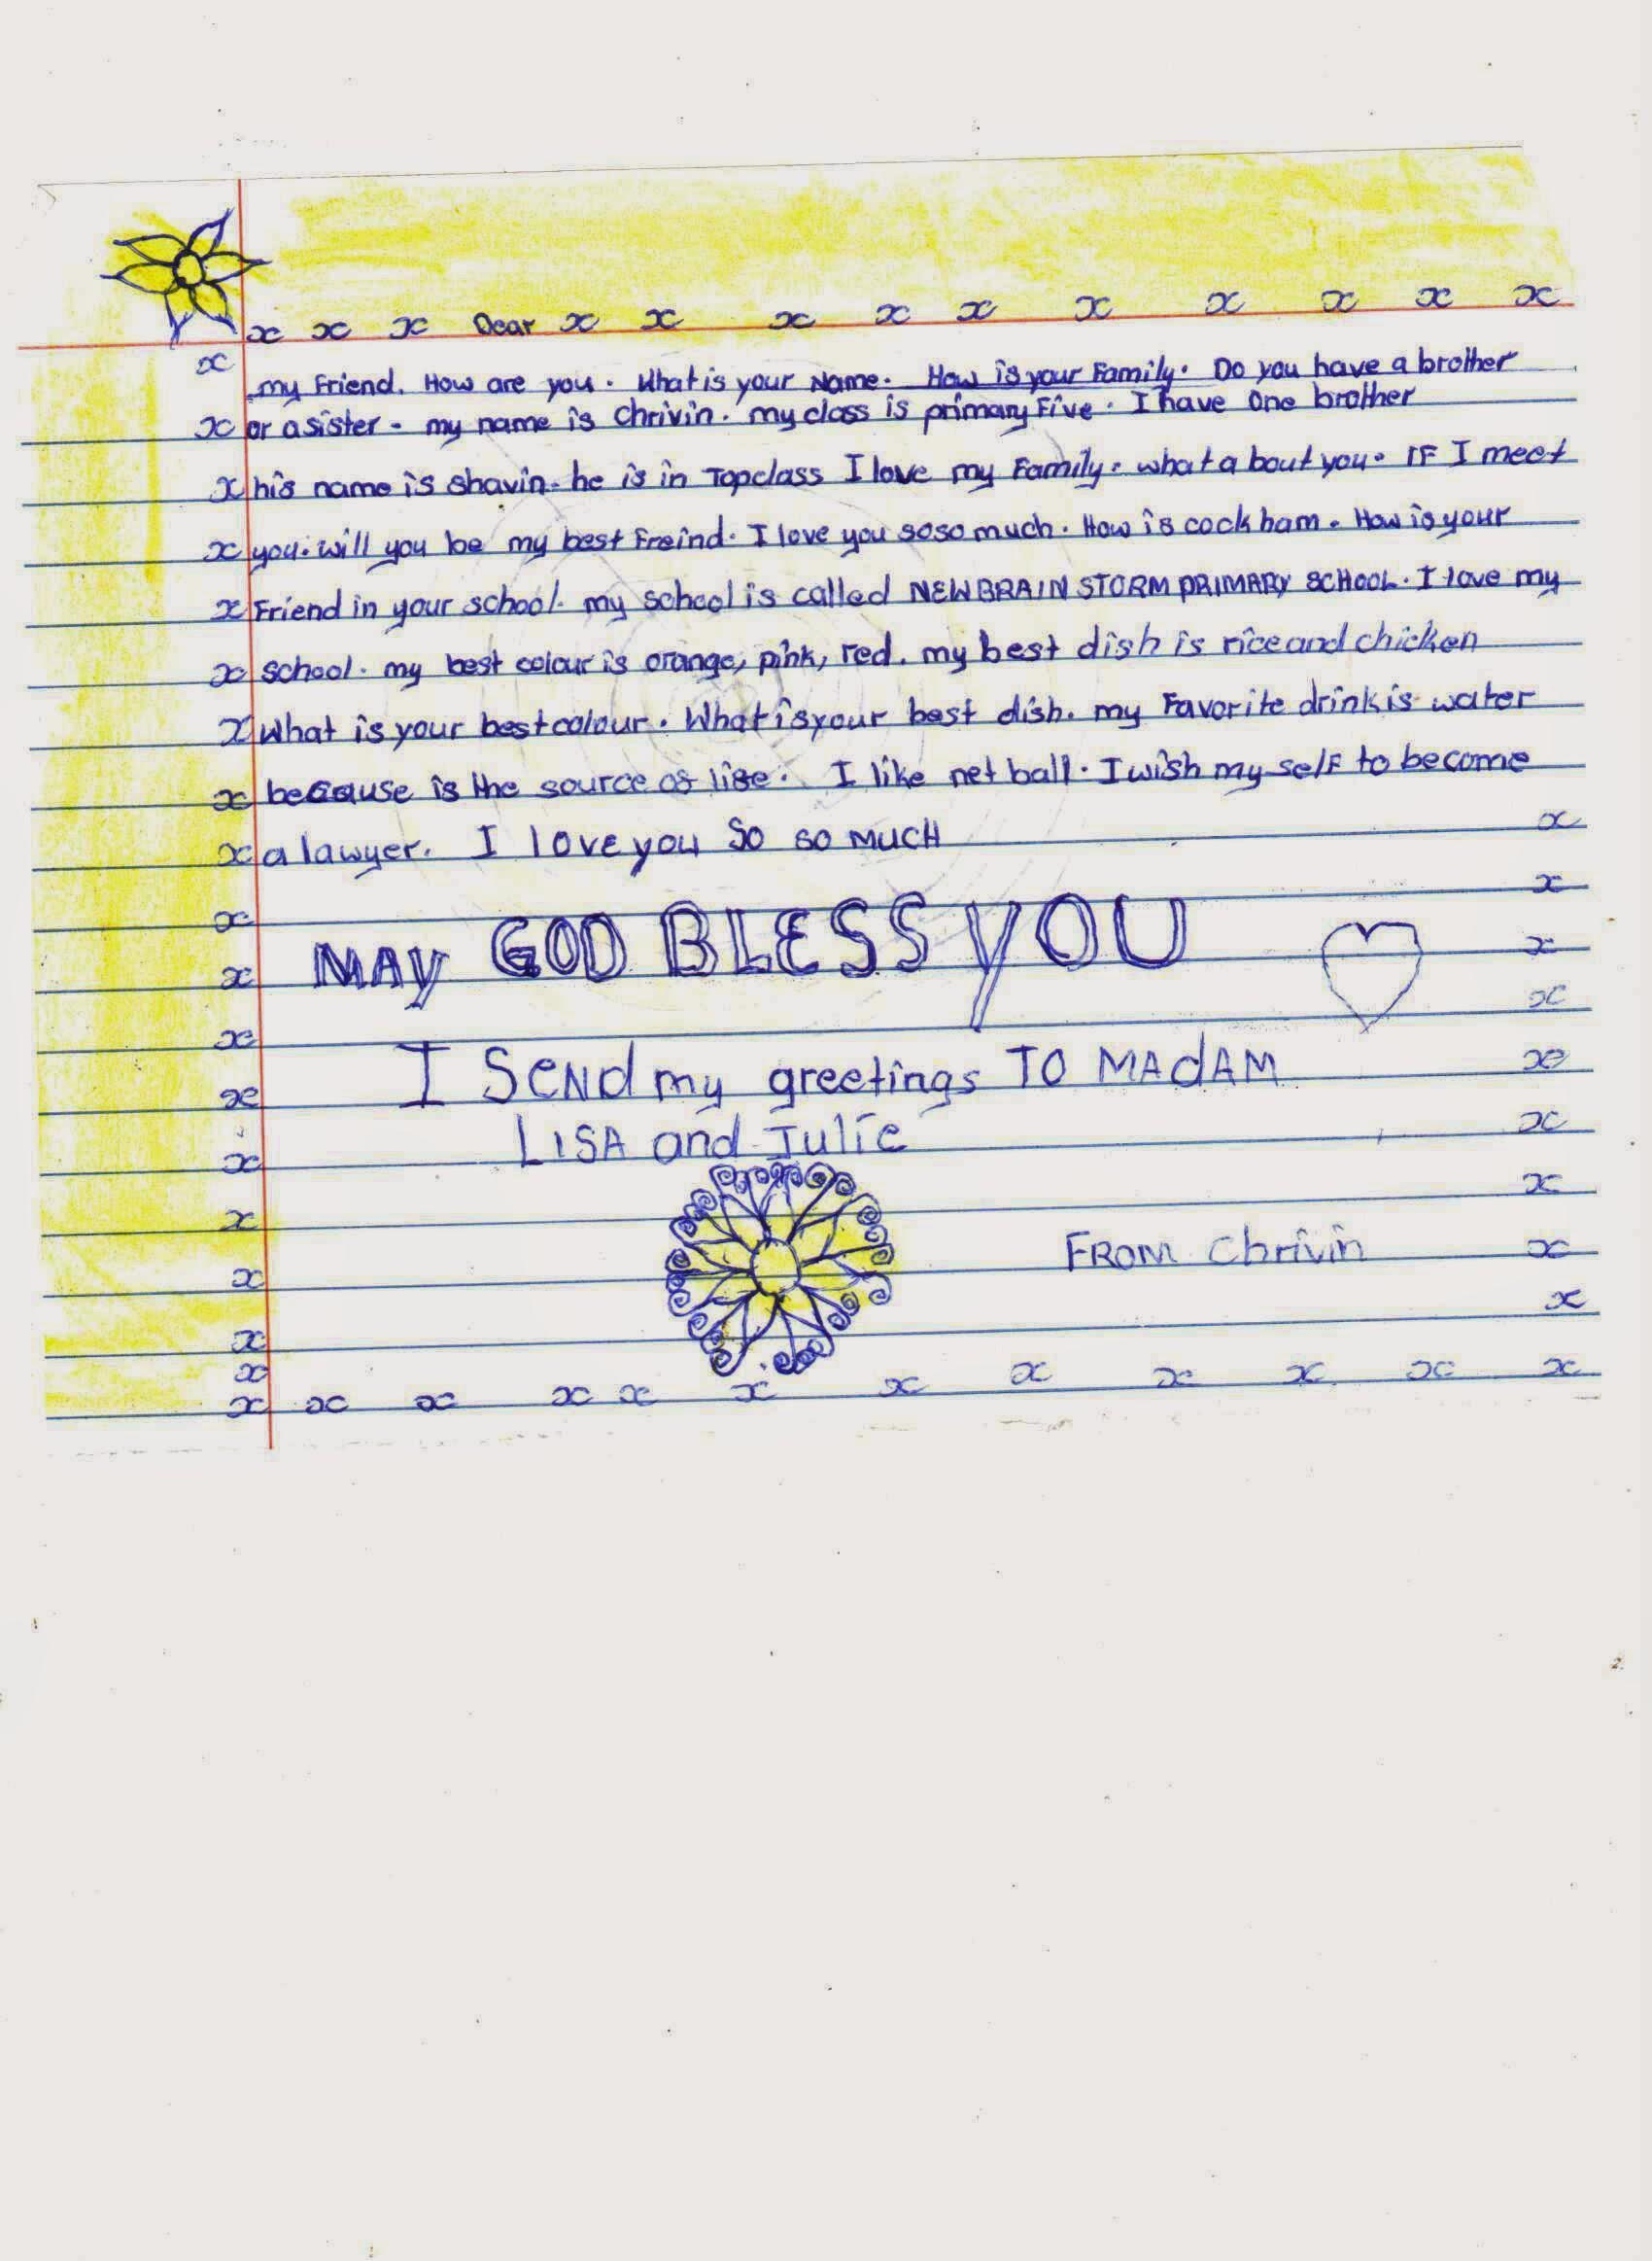 x x x Dear x x x x x x x x x x
x my Friend. How are you. What is your Name. How is your Family. Do you have a brother
x or a sister - my name is Chrivin. my class is primary Five. I have One brother
x his name is shavin. he is in Topclass I love my Family. what a bout you. IF I meet
x you. will you be my best Freind. I love you soso much. How is cock ham. How is your
x Friend in your school. my school is called NEW BRAIN STORM PRIMARY SCHOOL. I love my
x school. my best colour is orange, pink, red. my best dish is rice and chicken
x What is your best colour. What is your best dish. my Favorite drink is water
x because is the source os lise. I like net ball. I wish my self to become
x a lawyer. I love you So so MUCH x
x x
x MAY GOD BLESS YOU x
x x
x I SeNd my greetings TO MAdAM x
x LISA and Julie x
x x
x FROM Chrivin x
x x
x
x x x x x x x x x x x x